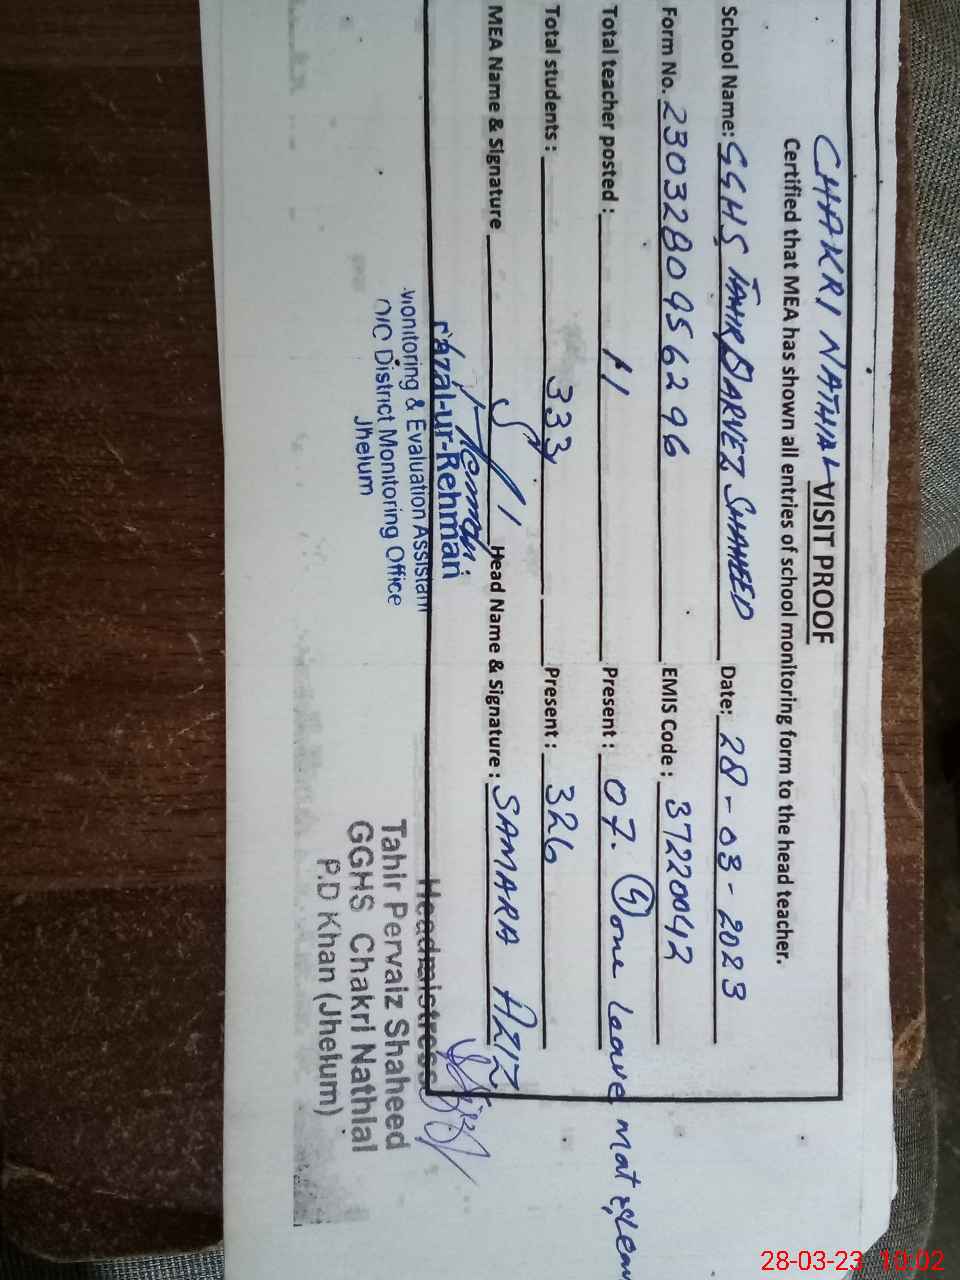 CHAKRI NATHIAL VISIT PROOF
Certified that MEA has shown all entries of school monitoring form to the head teacher.
School Name: GGHS TAHIR PARVEZ SHAHEED Date: 28-03-2023
Form No. 230328095 6296 EMIS Code: 37220042
Total teacher posted: 11 Present: 07. one leave, mat
Total students: 333 Present: 326
MEA Name & Signature Head Name & Signature: SAMARA AZIZ
Fazal-ur-Rehman
Monitoring & Evaluation Assistant
O/C District Monitoring Office
Jhelum
Headmistress
Tahir Pervaiz Shaheed
GGHS Chakri Nathlal
P.D Khan (Jhelum)
28-03-23 10:02